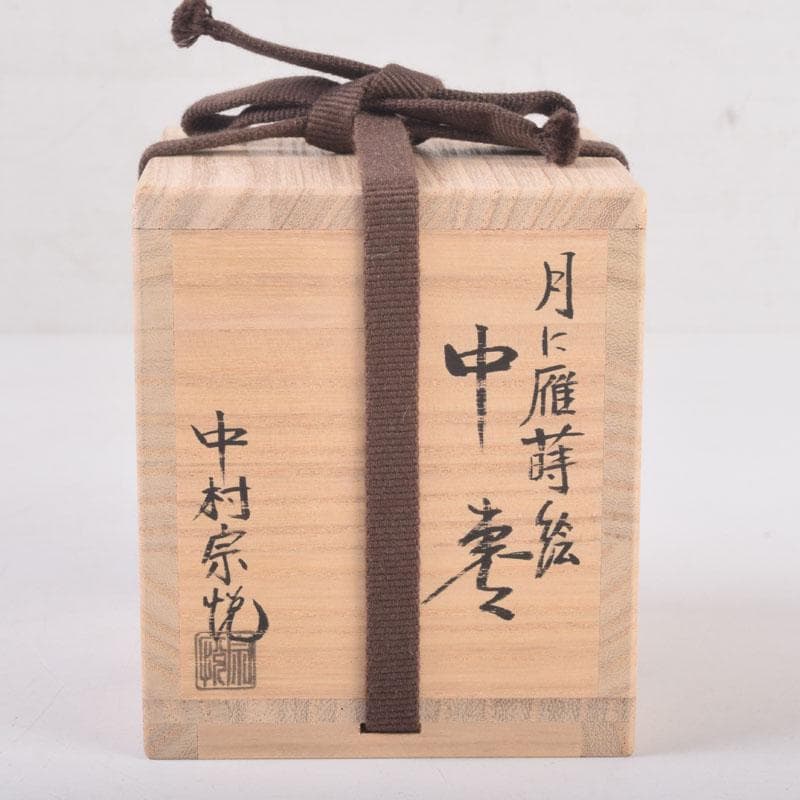 月に雁蒔絵
中棗
中村宗悦